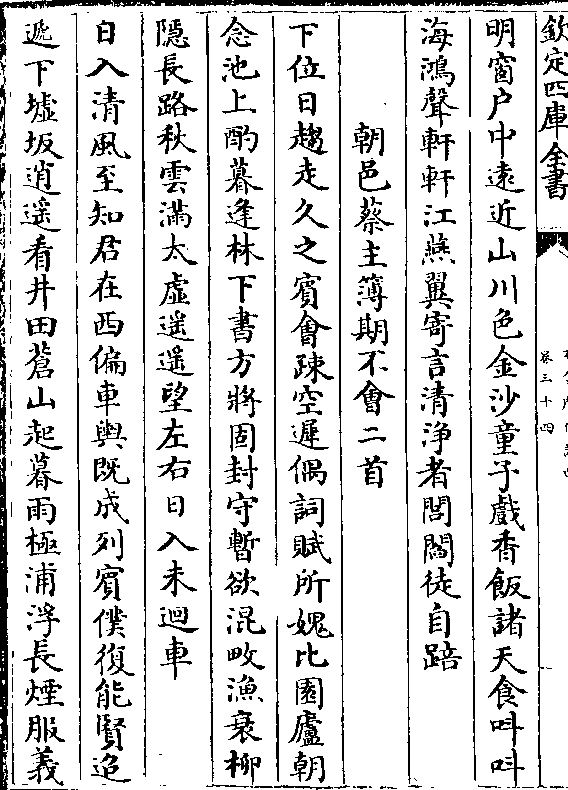 欽定四庫全書
卷三十四
明窗户中遠近山川色金沙童子戲香飯諸天食呌呌
海鴻聲軒軒江燕翼寄言清淨者閭閻徒自踣
朝邑蔡主簿期不會二首
下位日趨走久之賓會疎空遲偶詞賦所媿比園廬朝
念池上酌暮逢林下書方將固封守暫欲混畋漁衰柳
隱長路秋雲滿太虛遥遥望左右日入未迴車
日入清風至知君在西偏車輿既成列賓僕復能賢迢
遞下墟坂逍遥看井田蒼山起暮雨極浦浮長煙服義